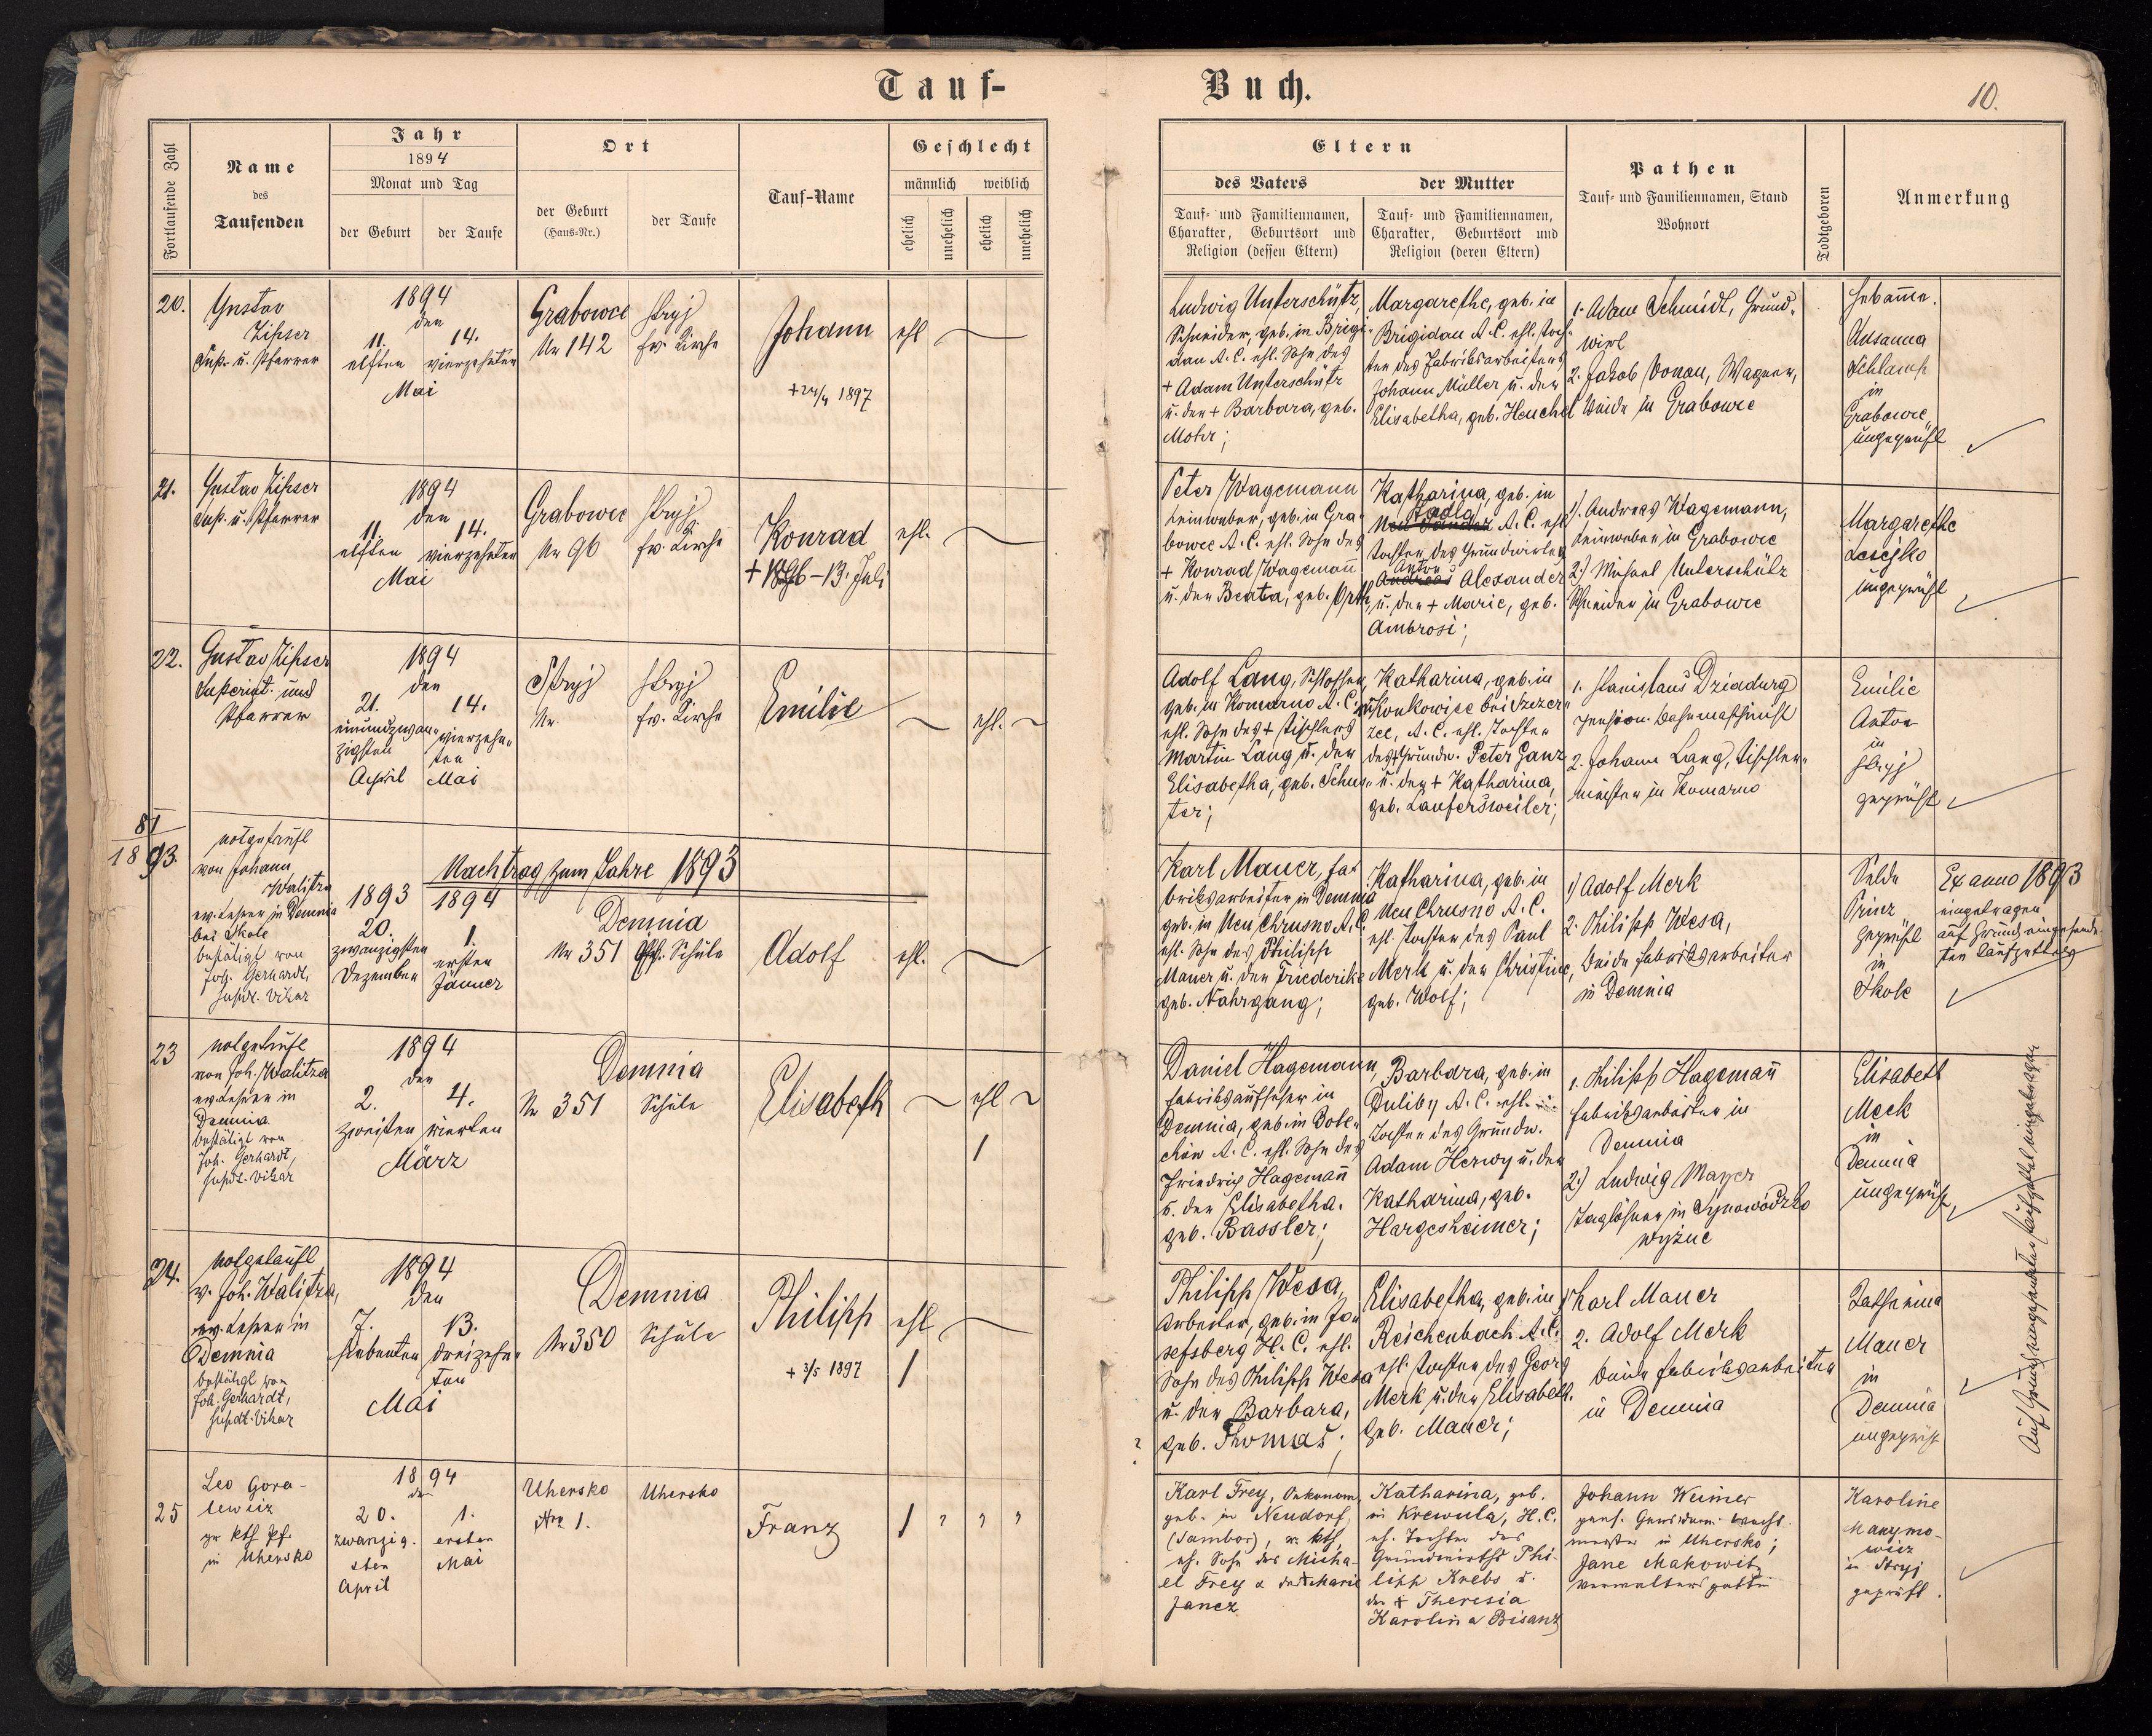 Tauf-Buch.
10.
Fortlaufende Zahl
Name
des
Taufenden
Jahr
1894
Monat und Tag
der Geburt
der Taufe
Ort
der Geburt
(Haus-Nr.)
der Taufe
Tauf-Name
Geschlecht
männlich
weiblich
ehelich
unehelich
ehelich
unehelich
Eltern
des Vaters
Tauf- und Familiennamen,
Charakter, Geburtsort und
Religion (dessen Eltern)
der Mutter
Tauf- und Familiennamen,
Charakter, Geburtsort und
Religion (deren Eltern)
Pathen
Tauf- und Familiennamen, Stand
Wohnort
Todtgeboren
Anmerkung
20.
Gustav
Zipser
Sup. u. Pfarrer
1894
den
11.
elften
14.
vierzehnten
Mai
Grabowce
Nr 142
Stryj
ev. Kirche
Johann
+ 24/4 1897
ehl
Ludwig Unterschütz,
Schneider, geb. in Brigi-
dau A.C. ehl. Sohn des
+ Adam Unterschütz
u. der + Barbara, geb.
Mohr;
Margarethe, geb. in
Brigidau A.C. ehl. Toch-
ter des Fabriksarbeiters
Johann Müller u. der
Elisabetha, geb. Heuchel
1. Adam Schmidt, Grund-
wirt
2. Jakob Donau, Wagner,
beide in Grabowce
Hebamme.
Schlamp
in
Grabowce
ungeprüft
21.
Gustav Zipser
Sup. u. Pfarrer
1894
den
11.
elften
14.
vierzehnten
Mai
Grabowce
Nr 96
Stryj
ev. Kirche
Konrad
13. Juli
ehl.
Peter Wagemann
Leinweber, geb. in Gra-
bowce A.C. ehl. Sohn des
+ Konrad Wagemann
u. der Beata, geb. Orth
Katharina, geb. in
A.C. ehl
Tochter des Grundwirtes
Anton
Andreas Alexander
u. der + Marie, geb.
Ambrosi;
1). Andreas Wagemann,
Leinweber in Grabowce
2.) Michael Unterschütz
Schneider in Grabowce
Margarethe
ungeprüft
22.
Gustav Zipser
Superint. und
Pfarrer
1894
den
21.
einundzwan-
zigsten
April
14.
vierzehn-
ten
Mai
Stryj
Nr.
Stryj
ev. Kirche
Emilie
ehl.
Adolf Lang, Schlosser,
geb. in Komarno A.C.
ehl. Sohn des + Tischlers
Martin Lang u. der
Elisabetha, geb. Schus-
ter;
Katharina, geb. in
bei Szczer-
zec, A.C. ehl. Tochter
des + Grundw. Peter Ganz
u. der + Katharina,
geb. Laufersweiler;
1. Stanislaus Dziadurg
pension. Bahnmaschinist
2. Johann Lang, Tischler-
meister in Komarno
Emilie
Anton
in
Stryj
geprüft
81
1893.
notgetauft
von Johann
Walitza
ev. Lehrer in Demnia
bei Skole
bestätigt von
Joh. Gerhardt,
Supdt. Vikar
Nachtrag zum Jahre 1893
1893
20.
zwanzigsten
Dezember
1894
1.
ersten
Jänner
Demnia
Nr 351
Schule
Adolf
ehl.
Karl Mauer, Fa-
briksarbeiter in Demnia
geb. in Neu Chrusno A.C.
ehl. Sohn des Philipp
Mauer u. der Friederike
geb. Nahrgang;
Katharina, geb. in
Neu Chrusno A.C.
ehl. Tochter des Paul
Merk u. der Christine,
geb. Wolf;
1) Adolf Merk
2. Philipp Wesa,
beide Fabriksarbeiter
in Demnia
Selde
Prinz
geprüft
in
Skole
Ex anno 1893
eingetragen
auf Grund eingesende-
ten Taufzettels
23
notgetauft
von Joh. Walitza
ev. Lehrer in
Demnia
bestätigt von
Joh. Gerhardt,
Supdt. Vikar
1894
den
2.
zweiten
4.
vierten
März
Demnia
Nr 351
Schule
Elisabeth
ehl
1
Daniel Hagemann,
Fabriksaufseher in
Demnia, geb. in Dole-
chow A.C. ehl. Sohn des
Friedrich Hagemann
u. der Elisabetha.
geb. Bassler;
Barbara, geb. in
Duliby A.C. ehl.
Tochter des Grundw.
Adam Herwy u. der
Katharina, geb.
Hargesheimer;
1. Philipp Hagemann
Fabriksarbeiter in
Demnia
2.) Ludwig Mayer
Taglöhner in Synowódzko
wyżne
Elisabeth
Meck
in
Demnia
ungeprüft,
24.
notgetauft
v. Joh. Walitza,
ev. Lehrer in
Demnia
bestätigt von
Joh. Gerhardt,
Supdt. Vikar
1894
den
7.
siebenten
13.
dreizehn-
ten
Mai
Demnia
Nr 350
Schule
Philipp
+ 3/5 1897
ehl
1
Philipp Wesa,
Arbeiter, geb. in Jo-
sefsberg H.C. ehl.
Sohn des Philipp Wesa
u. der Barbara,
geb. Thomas;
Elisabetha, geb. in
Reichenbach A.C.
ehl. Tochter des Georg
Merk u. der Elisabeth.
geb. Mauer;
1) Karl Mauer
2. Adolf Merk
beide Fabriksarbeiter
in Demnia
Katharina
Mauer
in
Demnia
ungeprüft
Auf Grund eingesendeter Taufzettel eingetragen
25
Leo Gora-
lewicz
gr. kth Pf.
in Uhersko
1894
den
20.
zwanzig-
sten
April
1.
ersten
Mai
Uhersko
Nro 1.
Uhersko
Franz
1
Karl Frey, Oekonom,
geb. in Neudorf,
(Sambor), r. kth,
eh. Sohn des Micha-
el Frey & der + Marie
Janez
Katharina, geb.
in Krewula, H.C.
eh. Tochter des
Grundwirths Phi-
lipp Krebs u.
der + Theresia
Karolina Bisanz
Johann Weimer
pens. Gendarm. Wacht-
meister in Uhersko;
Jane Makowitz
Verwaltersgattin
Karoline
Manymo-
wicz
in Stryj
geprüft.